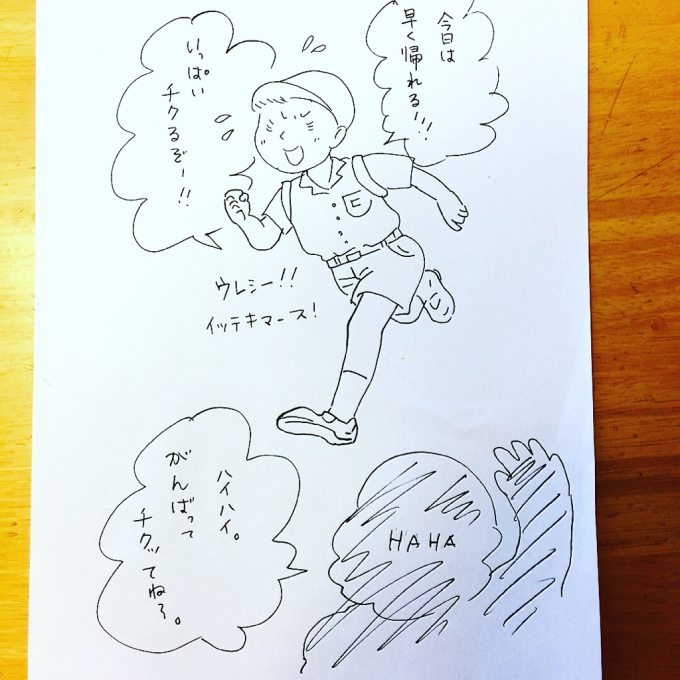 今日は
早く帰れる!!!
いっぱい
チクるぞー!!
ウレシー!!
イッテキマース!
ハイハイ。
がんばって
チクッてね〜。
HAHA